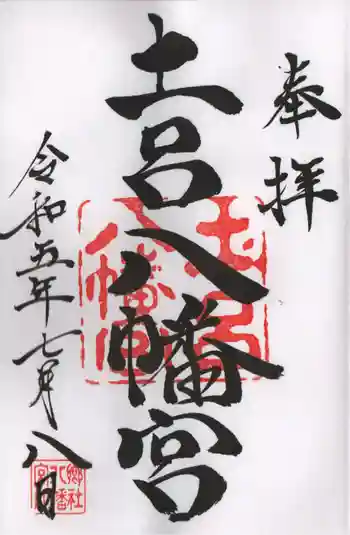 奉拝
土呂八幡宮
令和五年七月八日
土呂八幡宮
郷社八幡宮